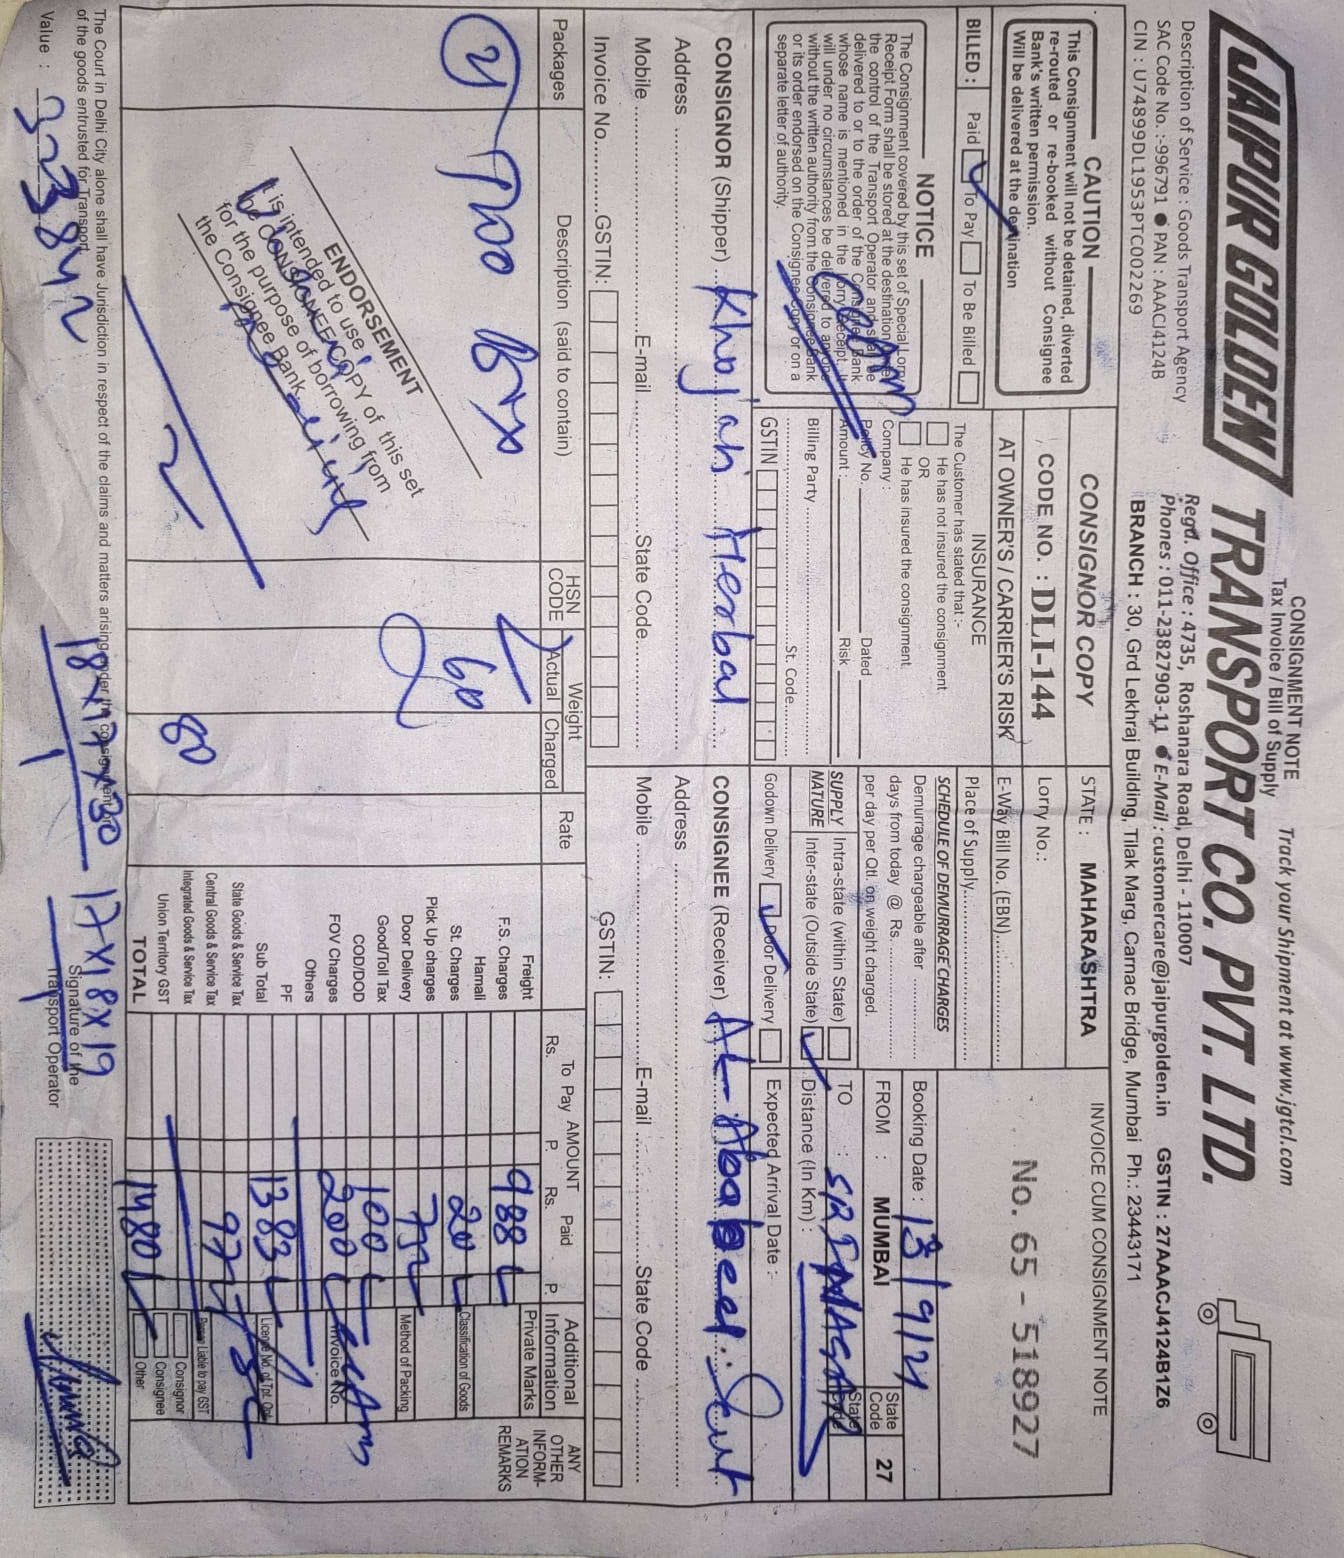 CONSIGNMENT NOTE
Tax Invoice / Bill of Supply
Track your Shipment at www.jgtcl.com
JAIPUR GOLDEN TRANSPORT CO. PVT. LTD.
Description of Service : Goods Transport Agency
SAC Code No. :-996791 ● PAN : AAACJ4124B
CIN : U74899DL1953PTC002269
Regd. Office : 4735, Roshanara Road, Delhi - 110007
Phones : 011-23827903-11 ● E-Mail : customercare@jaipurgolden.in
GSTIN : 27AAACJ4124B1Z6
BRANCH : 30, Grd Lekhraj Building, Tilak Marg, Carnac Bridge, Mumbai Ph.: 23443171
CAUTION
This Consignment will not be detained, diverted
re-routed or re-booked without Consignee
Bank's written permission.
Will be delivered at the destination
BILLED : Paid To Pay To Be Billed
NOTICE
The Consignment covered by this set of Special Lorry
Receipt Form shall be stored at the destination
the control of the Transport Operator and shall be
delivered to or to the order of the Consignee Bank
whose name is mentioned in the Lorry Receipt. It
will under no circumstances be delivered to anyone
without the written authority from the Consignee Bank
or its order endorsed on the Consignee Copy or on a
separate letter of authority.
CONSIGNOR COPY
CODE NO. : DLI-144
AT OWNER'S / CARRIER'S RISK
INSURANCE
The Customer has stated that :-
He has not insured the consignment
OR
He has insured the consignment.
Company :
Policy No. Dated
Amount : Risk
Billing Party
St. Code
GSTIN
STATE : MAHARASHTRA
Lorry No.:
E-Way Bill No. (EBN)
Place of Supply
SCHEDULE OF DEMURRAGE CHARGES
Demurrage chargeable after
days from today @ Rs.
per day per Qtl. on weight charged.
SUPPLY NATURE
Intra-state (within State)
Inter-state (Outside State)
Godown Delivery Door Delivery
INVOICE CUM CONSIGNMENT NOTE
No. 65 - 518927
Booking Date : 13/9/21
FROM : MUMBAI
State Code 27
TO : SRINAGAR
State Code
Distance (In Km) :
Expected Arrival Date :-
CONSIGNOR (Shipper) Khojati Herbal
Address
Mobile E-mail State Code
Invoice No. GSTIN:
CONSIGNEE (Receiver)
Address
Mobile E-mail State Code
GSTIN:
Packages
Description (said to contain)
HSN CODE
Weight
Actual Charged
Rate
AMOUNT
To Pay Paid
Rs. P. Rs. P
Additional Information
ANY OTHER INFORM-ATION REMARKS
Two Box
60
80
ENDORSEMENT
It is intended to use
the CONSIGNEE COPY of this set
for the purpose of borrowing from
the Consignee Bank
Freight 988
F.S. Charges
Hamali
St. Charges 20
Pick Up charges
Door Delivery 75
Good/Toll Tax
COD/DOD 100
FOV Charges 200
Others
PF
Sub Total 1383
State Goods & Service Tax
Central Goods & Service Tax 97
Integrated Goods & Service Tax
Union Territory GST
TOTAL 1480
Private Marks
Classification of Goods
Method of Packing
Invoice No.
Licence No. of Tpt. Opt.
Person Liable to pay GST
Consignor
Consignee
Other
The Court in Delhi City alone shall have Jurisdiction in respect of the claims and matters arising under the consignment or
of the goods entrusted for Transport.
Value :
18x17x30
17x18x19
Signature of the
Transport Operator